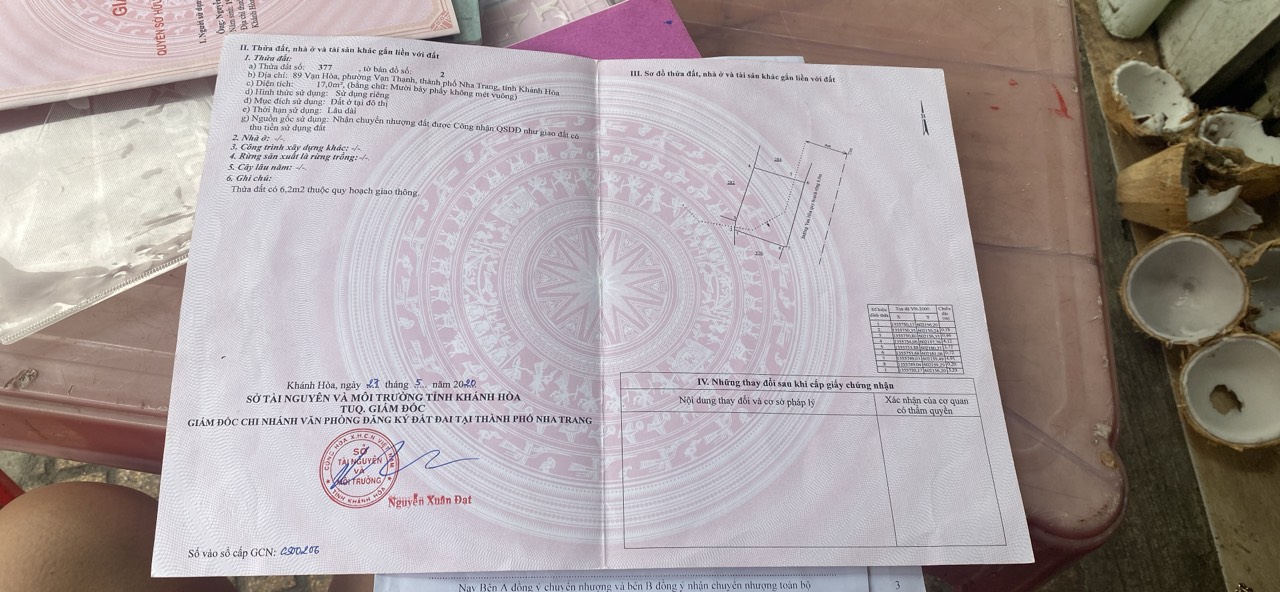 QUYỀN SỞ HỮU
I. Người sử dụng
II. Thửa đất, nhà ở và tài sản khác gắn liền với đất
1. Thửa đất:
a) Thửa đất số: 377 , tờ bản đồ số: 2
b) Địa chỉ: 89 Vạn Hòa, phường Vạn Thạnh, thành phố Nha Trang, tỉnh Khánh Hòa
c) Diện tích: 17,0m², (bằng chữ: Mười bảy phẩy không mét vuông)
d) Hình thức sử dụng: Sử dụng riêng
đ) Mục đích sử dụng: Đất ở tại đô thị
e) Thời hạn sử dụng: Lâu dài
g) Nguồn gốc sử dụng: Nhận chuyển nhượng đất được Công nhận QSDĐ như giao đất có
thu tiền sử dụng đất
2. Nhà ở: -/-
3. Công trình xây dựng khác: -/-
4. Rừng sản xuất là rừng trồng: -/-
5. Cây lâu năm: -/-
6. Ghi chú:
Thửa đất có 6,2m2 thuộc quy hoạch giao thông.
Khánh Hòa, ngày 29 tháng 5 năm 2020
SỞ TÀI NGUYÊN VÀ MÔI TRƯỜNG TỈNH KHÁNH HÒA
TUQ. GIÁM ĐỐC
GIÁM ĐỐC CHI NHÁNH VĂN PHÒNG ĐĂNG KÝ ĐẤT ĐAI TẠI THÀNH PHỐ NHA TRANG
CỘNG HÒA X.H.C.N VIỆT NAM
SỞ
TÀI NGUYÊN
VÀ
MÔI TRƯỜNG
TỈNH KHÁNH HÒA
Nguyễn Xuân Đạt
Số vào sổ cấp GCN: CS00206
III. Sơ đồ thửa đất, nhà ở và tài sản khác gắn liền với đất
Số hiệu đỉnh thửa
Tọa độ VN-2000
X Y
Chiều dài (m)
IV. Những thay đổi sau khi cấp giấy chứng nhận
Nội dung thay đổi và cơ sở pháp lý
Xác nhận của cơ quan
có thẩm quyền
Nay Bên A đồng ý chuyển nhượng và bên B đồng ý nhận chuyển nhượng toàn bộ
3